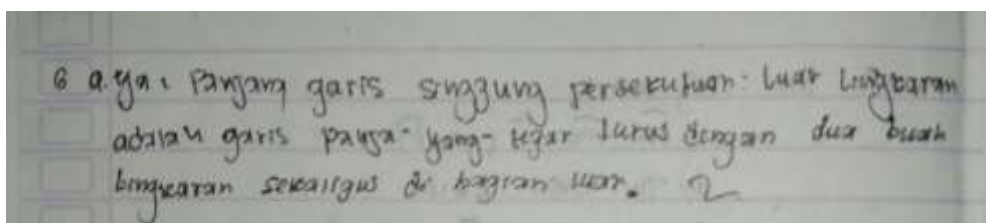 6 a. ya, Panjang garis singgung persekutuan luar lingkaran
adalah garis yang tegar lurus dengan dua buah
lingkaran sekaligus di bagian luar. 2